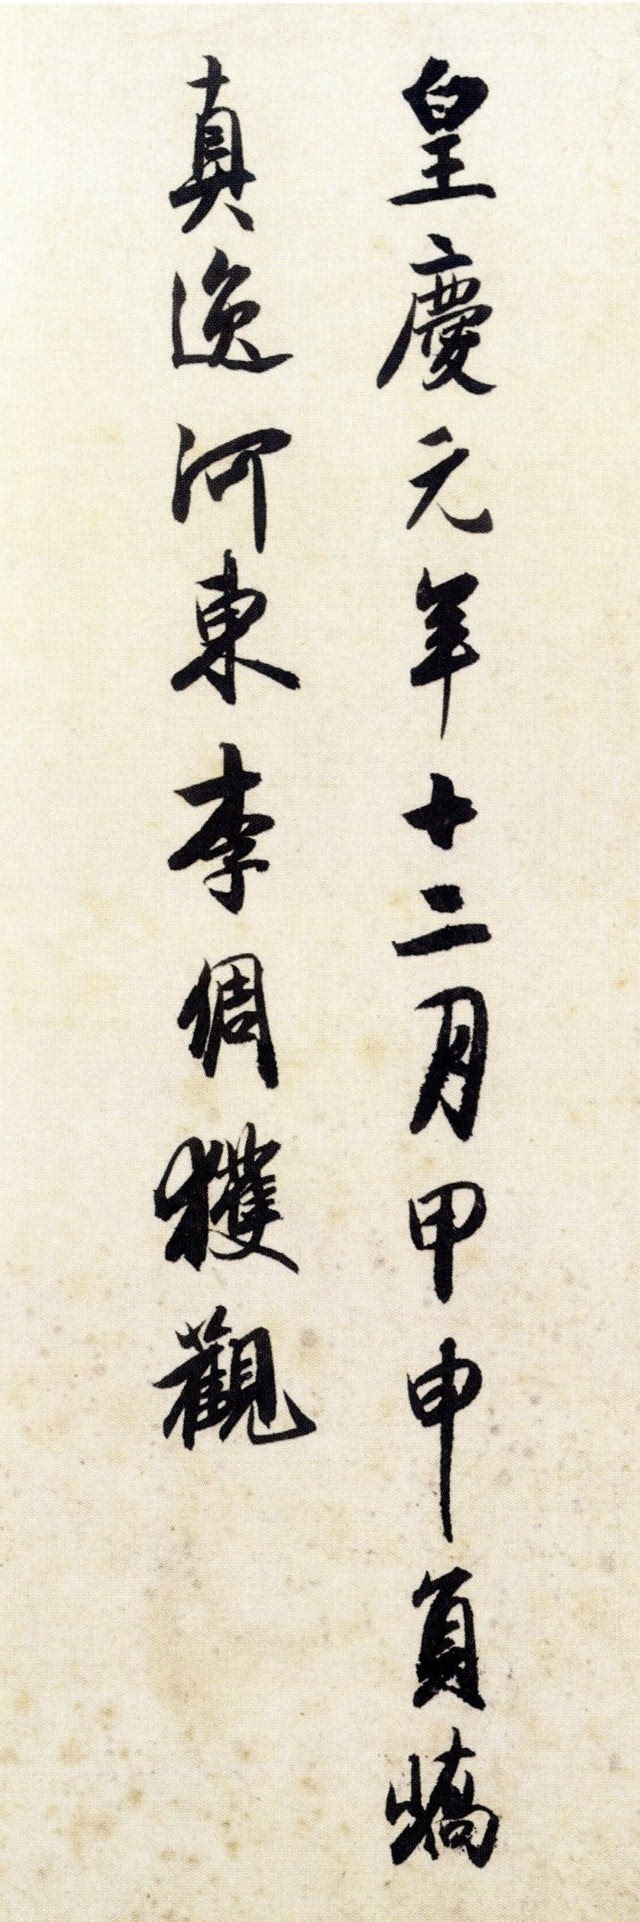 皇慶元年十二月甲申員嶠
真逸河東李倜獲觀